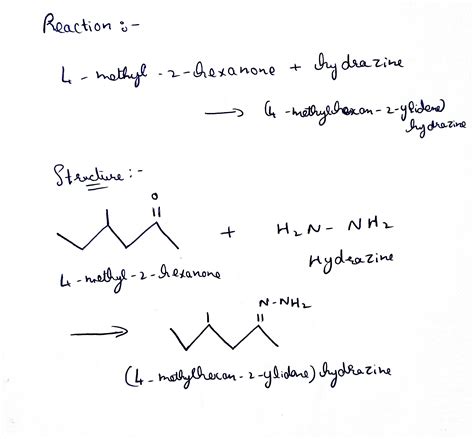 Reaction :-
4 - methyl - 2 - hexanone + hydrazine
⟶ (4 - methylhexan - 2 - ylidene)
hydrazine
Structure :-
O
+ H2N - NH2
4 - methyl - 2 - hexanone
Hydrazine
N-NH2
⟶
(4 - methylhexan - 2 - ylidene) hydrazine